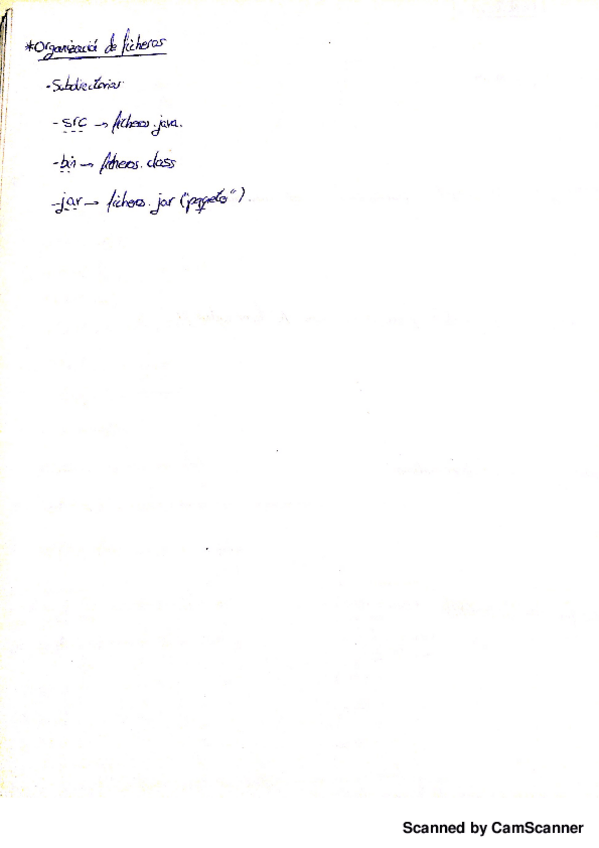 *Organizació de ficheros
-Subdirectorios
-src → ficheros .java.
-bin → ficheros .class
-jar → ficheros .jar ("paquete").
Scanned by CamScanner